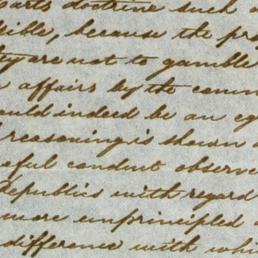 doctrine such
because the
ty are not to gamble
affairs by the comm
ould indeed be an eg
reasoning is shown
eful conduct observe
Republics with regard
more unprincipled
difference with whi